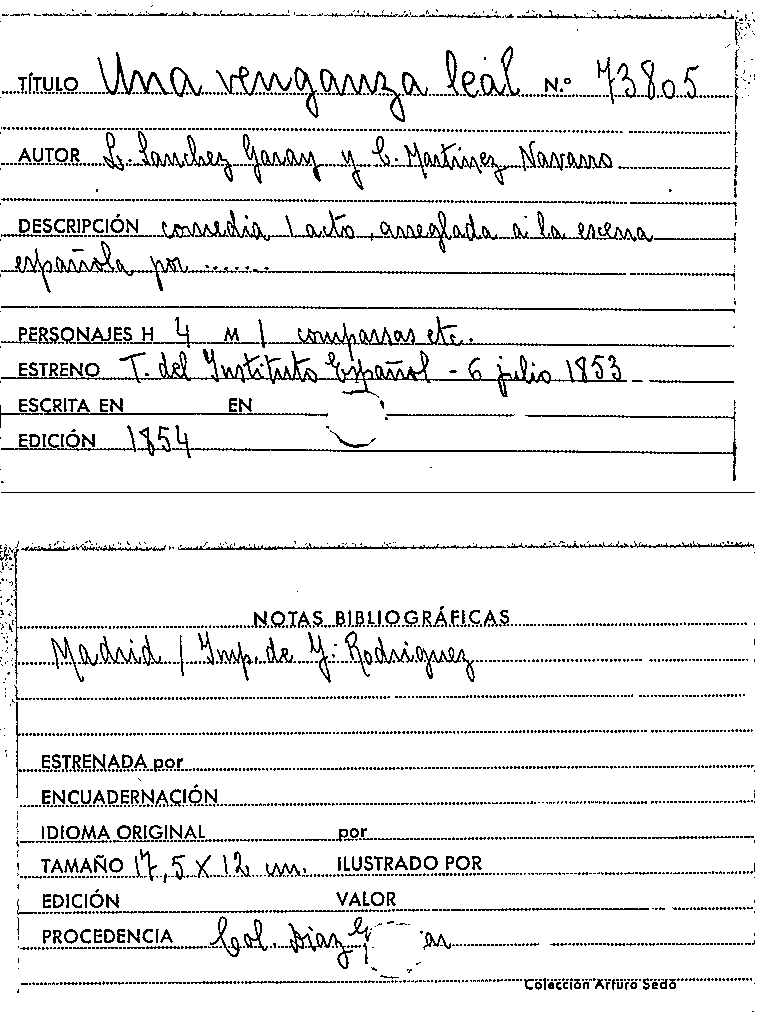 TÍTULO Una venganza leal N.º 73805
AUTOR L. Sanchez Garay y C. Martinez Navarro
DESCRIPCIÓN comedia 1 acto, arreglada a la escena
española por .......
PERSONAJES H 4 M 1 comparsas etc.
ESTRENO T. del Instituto Español - 6 julio 1853
ESCRITA EN EN
EDICIÓN 1854
NOTAS BIBLIOGRÁFICAS
Madrid / Imp. de J. Rodriguez
ESTRENADA por
ENCUADERNACIÓN
IDIOMA ORIGINAL por
TAMAÑO 17,5 X 12 cm. ILUSTRADO POR
EDICIÓN VALOR
PROCEDENCIA Col. Diaz
Colección Arturo Sedó